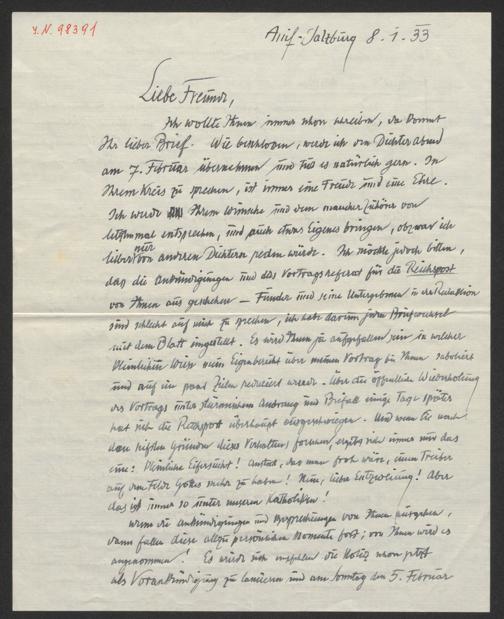 J. N. 98391
Anif-Salzburg 8.1.33
Liebe Freunde,
Ich wollte Ihnen immer schon schreiben, da kommt
Ihr lieber Brief. Wie besprochen, werde ich den Dichterabend
am 7. Februar übernehmen und tue es natürlich gern. In
Ihrem Kreis zu sprechen, ist immer eine Freude und eine Ehre.
Ich werde Ihrem Wunsche und dem mancher Zuhörer vom
letztenmal entsprechen, und auch etwas Eigenes bringen, obzwar ich
lieber nur von anderen Dichtern reden würde. Ich möchte jedoch bitten,
das die Ankündigungen und das Vortragsreferat für die Reichspost
von Ihnen aus geschehen — Funder und seine Untergebenen in der Redaktion
sind schlecht auf mich zu sprechen, ich habe darum jeden Briefwechsel
mit dem Blatt eingestellt. Es wird Ihnen ja aufgefallen sein in welcher
Weise mein Eigenbericht über meinen Vortrag bei Ihnen sabotiert
und auf ein paar Zeilen reduziert wurde. Über die öffentliche Wiederholung
des Vortrags unter stürmischem Andrang und Beifall einige Tage später
hat sich die Reichspost überhaupt ausgeschwiegen. Und wenn Sie nach
den tiefsten Gründen dieses Verhaltens forschen, ergibt sich immer nur das
eine: Kleinliche Eifersucht! Anstatt, das man froh wäre, einen Treiber
auf dem Felde Gottes mehr zu haben! Nein, lieber Entzweiung! Aber
das ist immer so unter unseren Katholiken!
Wenn die Ankündigungen und Besprechungen von Ihnen ausgehen,
dann fallen diese allzu persönlichen Momente fort; von Ihnen wird es
angenommen! Es würde sich empfehlen die Notiz schon jetzt
als Vorankündigung zu lancieren und am Sonntag den 5. Februar